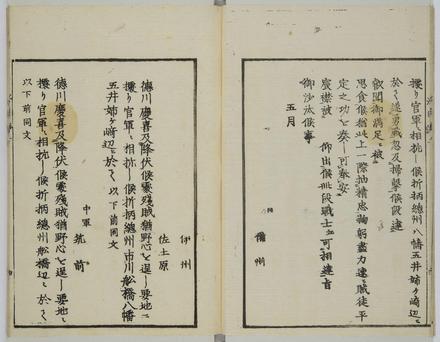 據リ官軍ニ相抗シ候折柄總州八幡五井姉ケ崎辺ニ
於て遂勇戰忽及掃擊候段達
叡聞御満足ニ被
思食候猶此上一際抽精忠鞠躬盡力速ニ賊徒平
定之功を奏シ可奉安
宸襟被 仰出候此段戰士ニ可相達旨
御沙汰候事
五月
備州
伊州
佐土原
德川慶喜及降伏候處残賊猶野心を逞シ要地ニ
據リ官軍ニ相抗シ候折柄總州市川船橋八幡
五井姉ケ崎辺ニ於て 以下前同文
中軍
筑前
德川慶喜及降伏候處残賊猶野心を逞シ要地ニ
據リ官軍ニ相抗シ候折柄總州船橋辺ニ於て
以下前同文